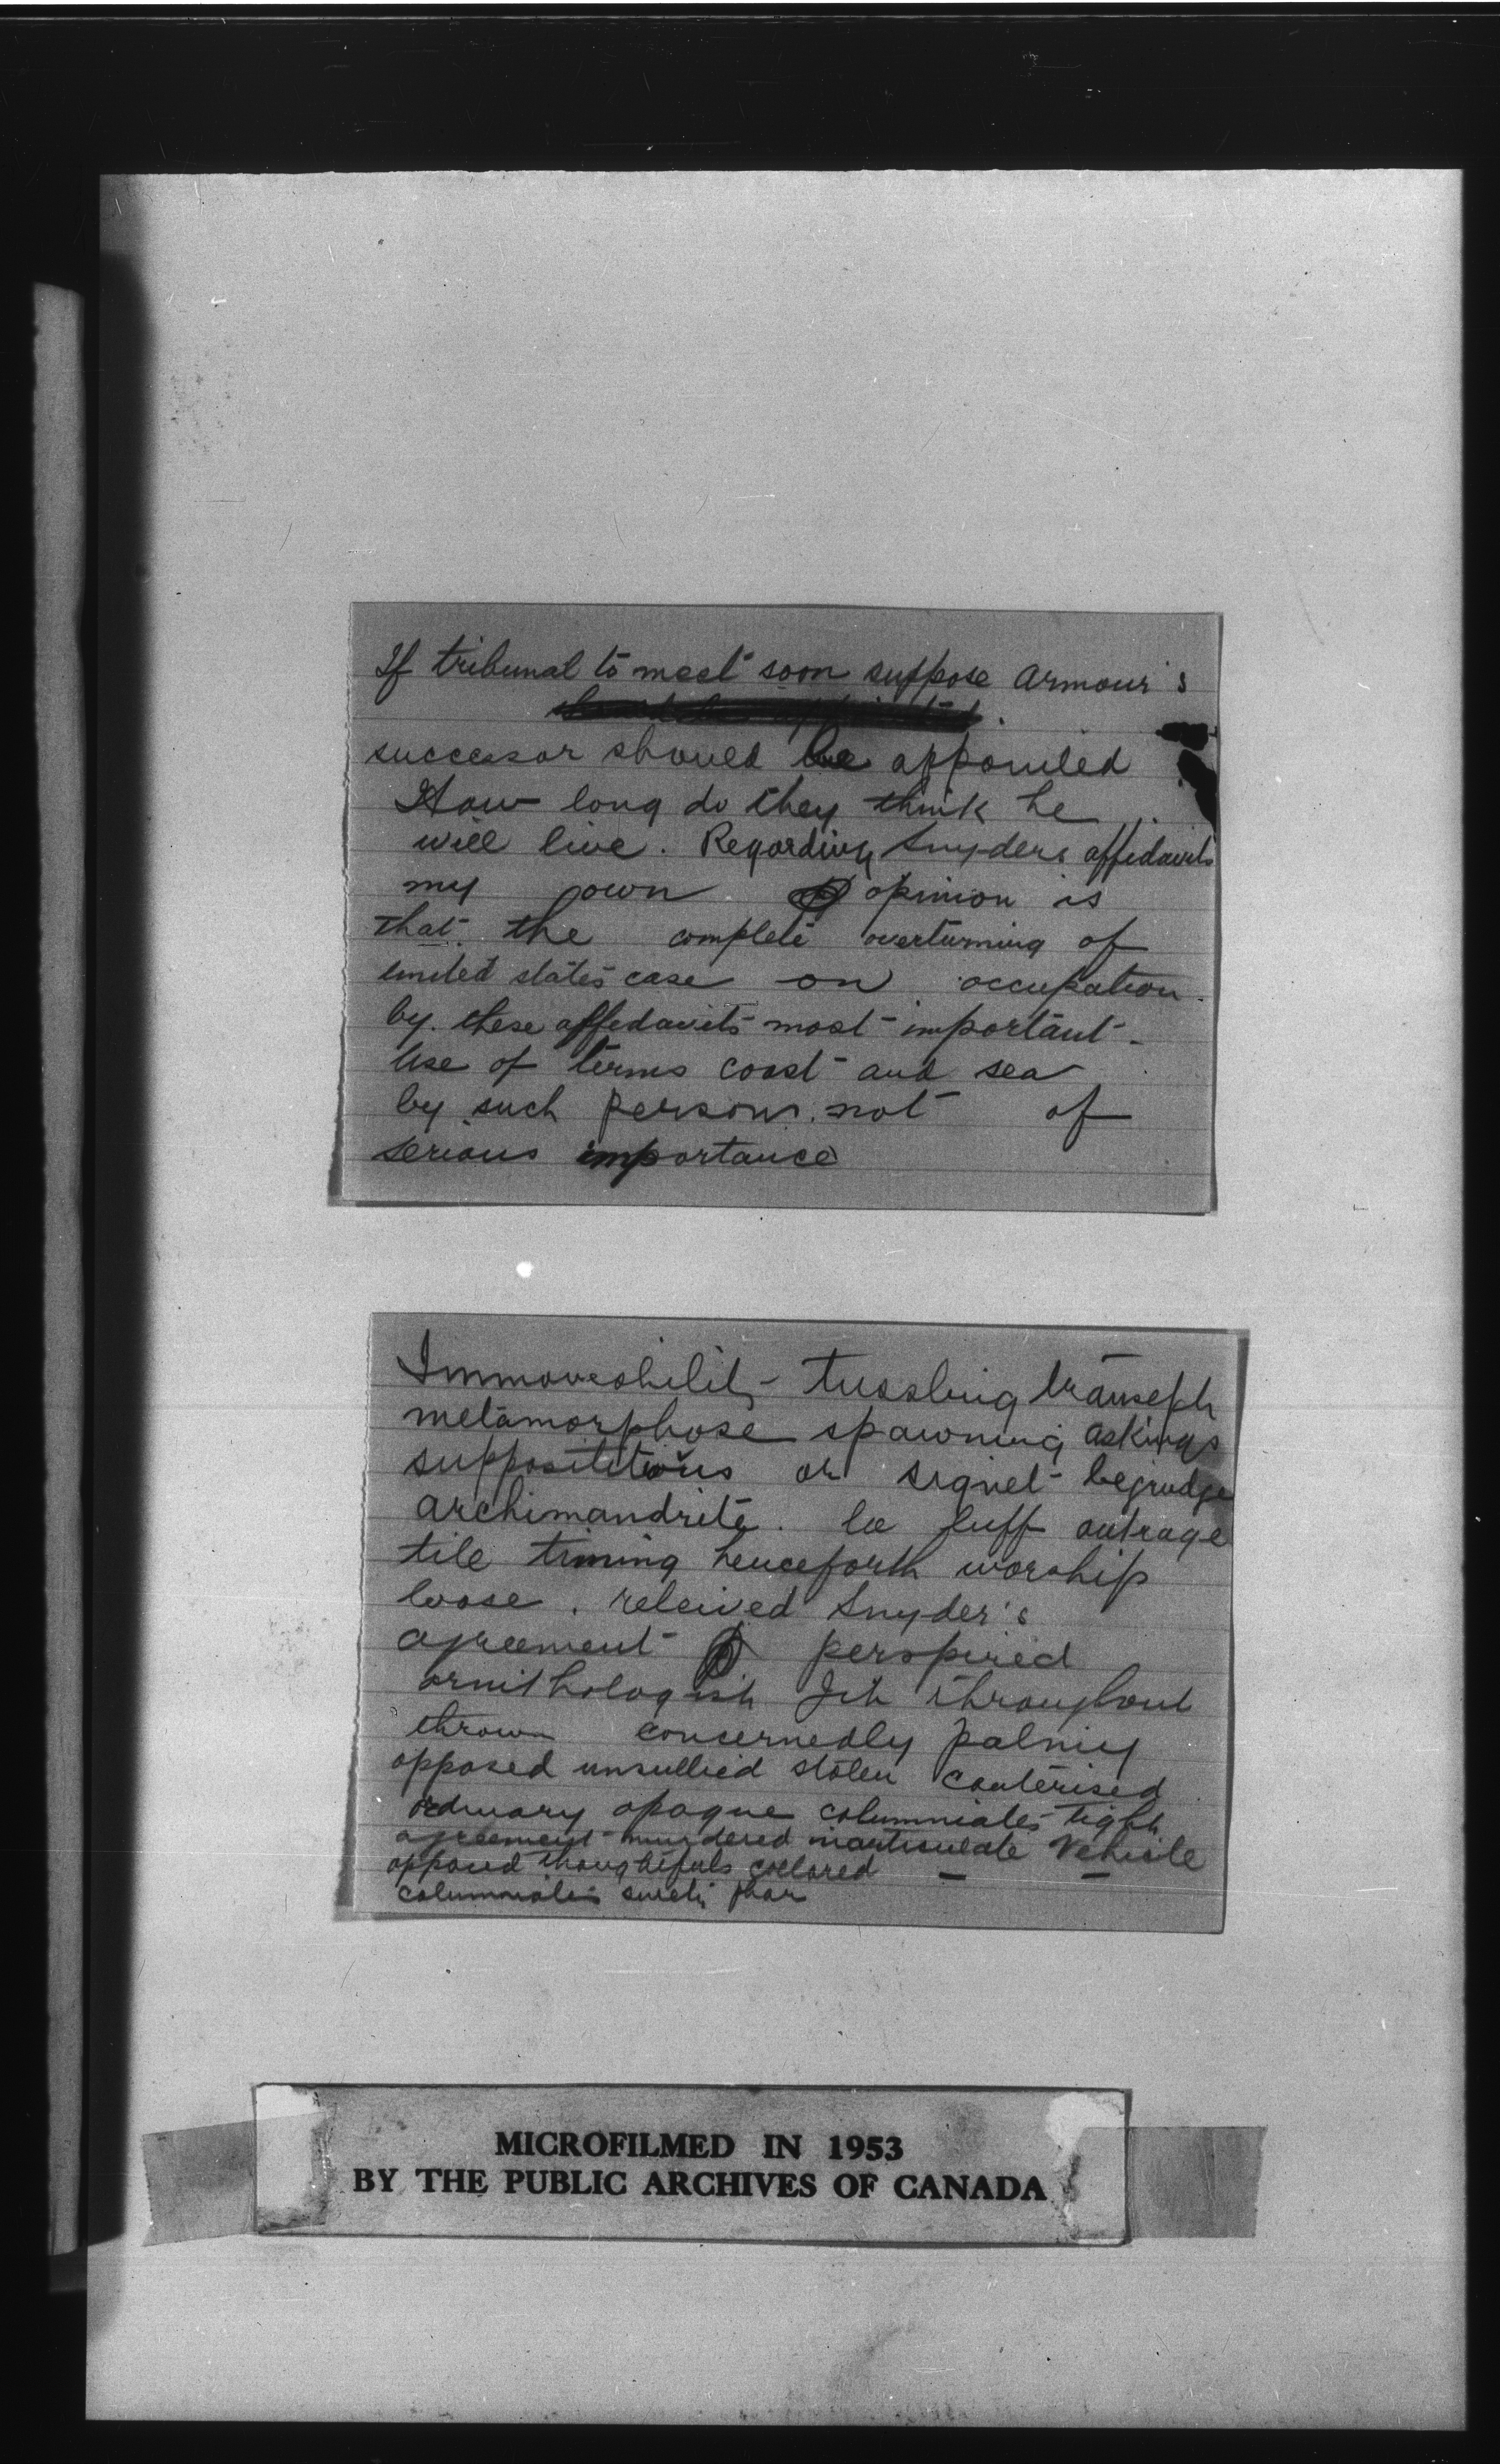 If tribunal to meet soon suppose Armour's
successor should be appointed
How long do they think he
will live. Regarding Snyders affidavits
my own opinion is
that the complete overturning of
united states case on occupation
by these affidavits most important
Use of terms coast and sea
by such persons not of
serious importance
Immoveability tussling transept
metamorphose spawning askings
supposititious or signet begrudge
archimandrite. luff outrage
tile timing henceforth worship
loose. received Snyder's
agreement perspired
ornithologist throughout
thrown concernedly palmy
opposed unsullied stolen cauterised
ordinary opaque calumniates tight
agreement murdered inarticulate vehicle
opposed collared
calumniates
MICROFILMED IN 1953
BY THE PUBLIC ARCHIVES OF CANADA